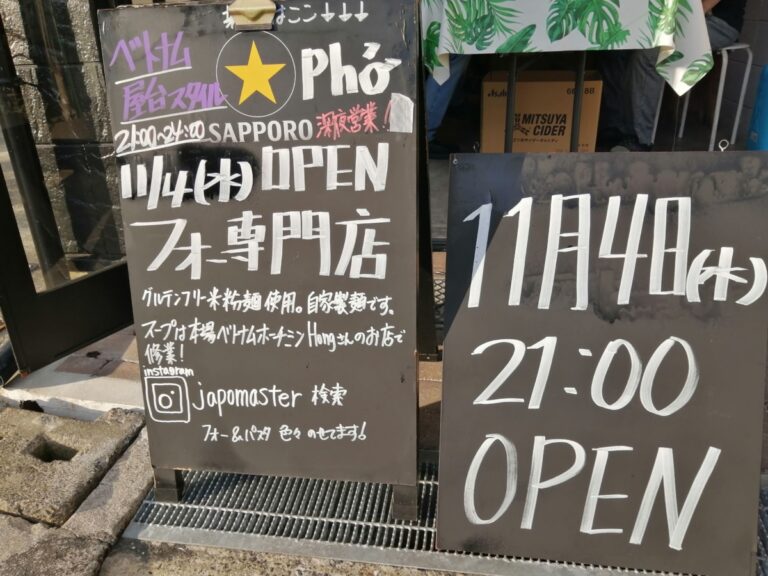 はコン↓↓↓
ベトナム
屋台スタイル
Phở
21:00~24:00 SAPPORO 深夜営業!
11/4(木) OPEN
フォー専門店
グルテンフリー米粉麺使用。自家製麺です、
スープは本場ベトナムホーチミンHongさんのお店で
修業!
instagram
japomaster 検索
フォー&パスタ 色々のせてます!
11月4日(木)
21:00
OPEN
Asahi
MITSUYA
CIDER